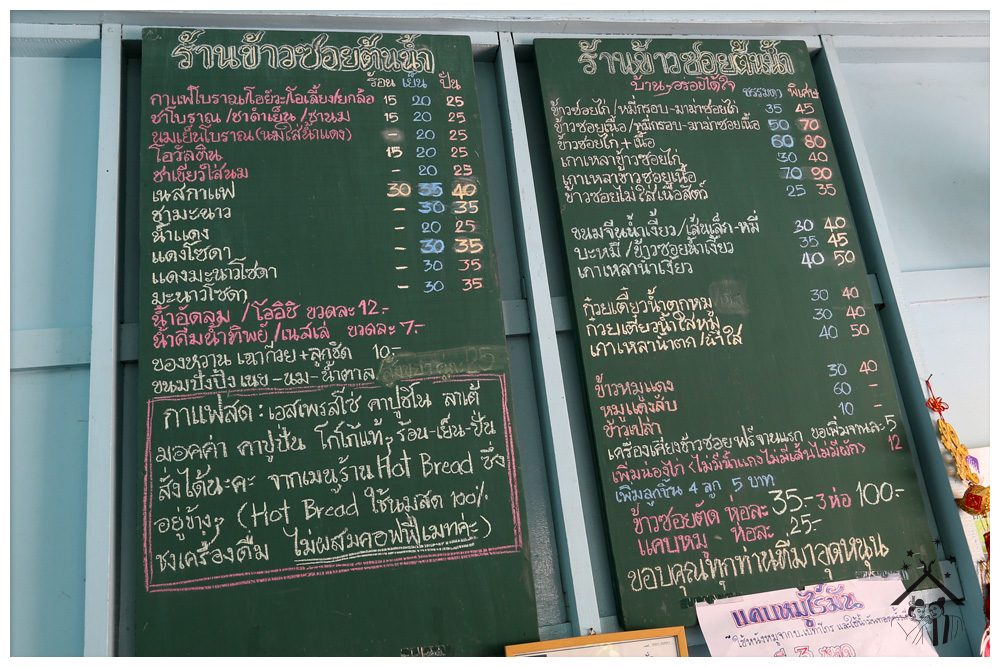 ร้านข้าวซอยต้นน้ำ
ร้อน เย็น ปั่น
กาแฟโบราณ/โอยัวะ/โอเลี้ยง/ยกล้อ 15 20 25
ชาโบราณ /ชาดำเย็น /ชานม 15 20 25
นมเย็นโบราณ(นมใส่น้ำแดง) - 20 25
โอวัลติน 15 20 25
ชาเขียวใส่นม - 20 25
เนสกาแฟ 30 35 40
ชามะนาว - 30 35
น้ำแดง - 20 25
แดงโซดา - 30 35
แดงมะนาวโซดา - 30 35
มะนาวโซดา - 30 35
น้ำอัดลม /โออิชิ ขวดละ 12.-
น้ำดื่มน้ำทิพย์/เนสเล่ ขวดละ 7.-
ของหวาน เฉาก๊วย+ลูกชิด 10.-
ขนมปังปิ้ง เนย-นม-น้ำตาล
กาแฟสด : เอสเพรสโซ่ คาปูชิโน ลาเต้
มอคค่า คาปูปั่น โกโก้แท้ๆ ร้อน-เย็น-ปั่น
สั่งได้นะคะ จากเมนูร้าน Hot Bread ซึ่ง
อยู่ข้างๆ (Hot Bread ใช้นมสด 100%
ชงเครื่องดื่ม ไม่ผสมคอฟฟี่เมทค่ะ)
ร้านข้าวซอยต้นน้ำ
บ้านๆอร่อยได้ใจ ธรรมดา พิเศษ
ข้าวซอยไก่/หมี่กรอบ-มาม่าซอยไก่ 35 45
ข้าวซอยเนื้อ/หมี่กรอบ-มาม่าซอยเนื้อ 50 70
ข้าวซอยไก่+เนื้อ 60 80
เกาเหลาข้าวซอยไก่ 30 40
เกาเหลาข้าวซอยเนื้อ 70 90
ข้าวซอยไม่ใส่เนื้อสัตว์ 25 35
ขนมจีนน้ำเงี้ยว/เส้นเล็ก-หมี่ 30 40
บะหมี่/ข้าวซอยน้ำเงี้ยว 35 45
เกาเหลาน้ำเงี้ยว 40 50
ก๋วยเตี๋ยวน้ำตกหมู 30 40
ก๋วยเตี๋ยวน้ำใสหมู 30 40
เกาเหลาน้ำตก/น้ำใส 40 50
ข้าวหมูแดง 30 40
หมูแดงสับ 60 -
ข้าวเปล่า 10 -
เครื่องเคียงข้าวซอยฟรีจานแรก ขอเพิ่มจานละ 5
เพิ่มน่องไก่ (ไม่มีน้ำแกงไม่มีเส้นไม่มีผัก) 12
เพิ่มลูกชิ้น 4 ลูก 5 บาท
ข้าวซอยตัด ห่อละ 35.- 3 ห่อ 100.-
แคบหมู ห่อละ 25.-
ขอบคุณทุกท่านที่มาอุดหนุน
แคบหมูไร้มัน